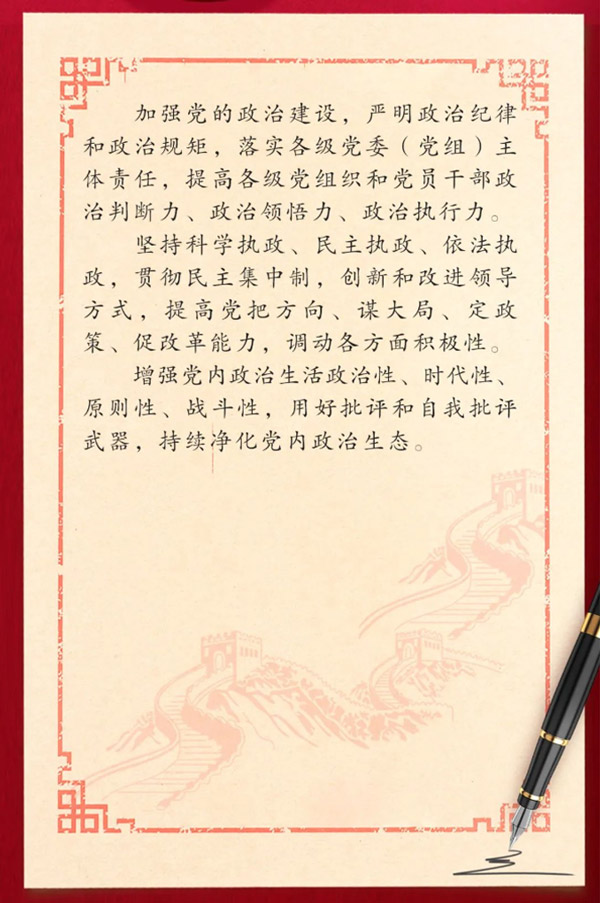 加强党的政治建设，严明政治纪律
和政治规矩，落实各级党委（党组）主
体责任，提高各级党组织和党员干部政
治判断力、政治领悟力、政治执行力。
坚持科学执政、民主执政、依法执
政，贯彻民主集中制，创新和改进领导
方式，提高党把方向、谋大局、定政
策、促改革能力，调动各方面积极性。
增强党内政治生活政治性、时代性、
原则性、战斗性，用好批评和自我批评
武器，持续净化党内政治生态。